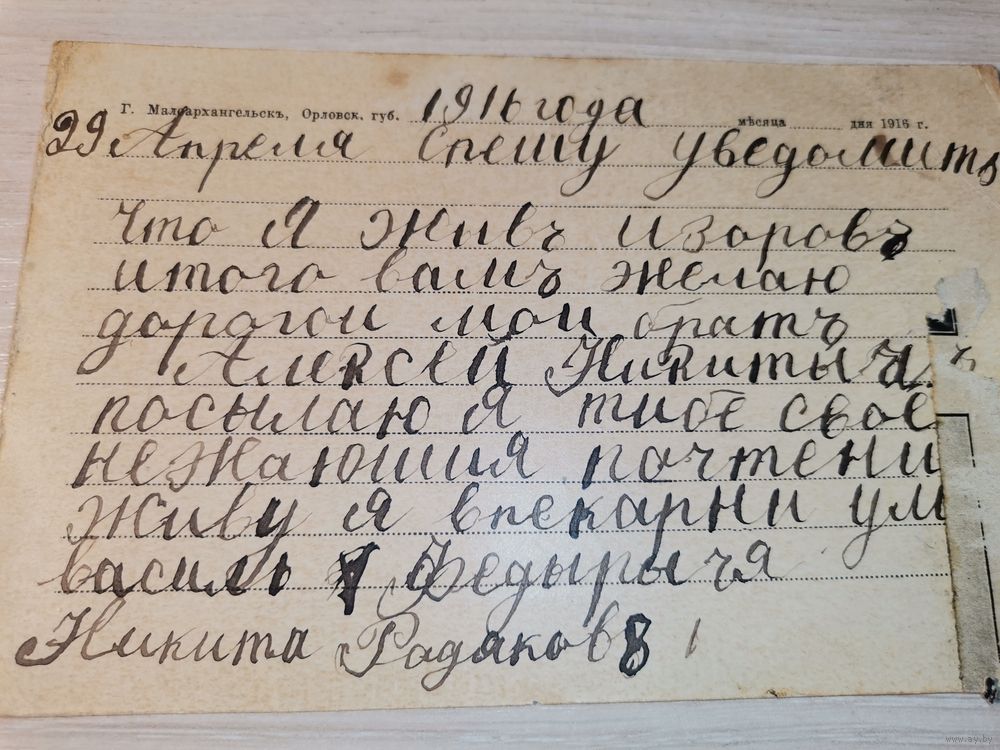 Г. Малоархангельскъ, Орловск. губ. 1916 года мѣсяца дня 1916 г.
29 Апреля Спешу уведомить
что Я живъ изоровъ
итого вамъ желаю
дорогои мои братъ
Алексей Никитычь
посылаю Я тибе свое
нежаюшия почтени
живу я впекарни ум
василь Федырычя
Никита Радяковъ
www.ay.by